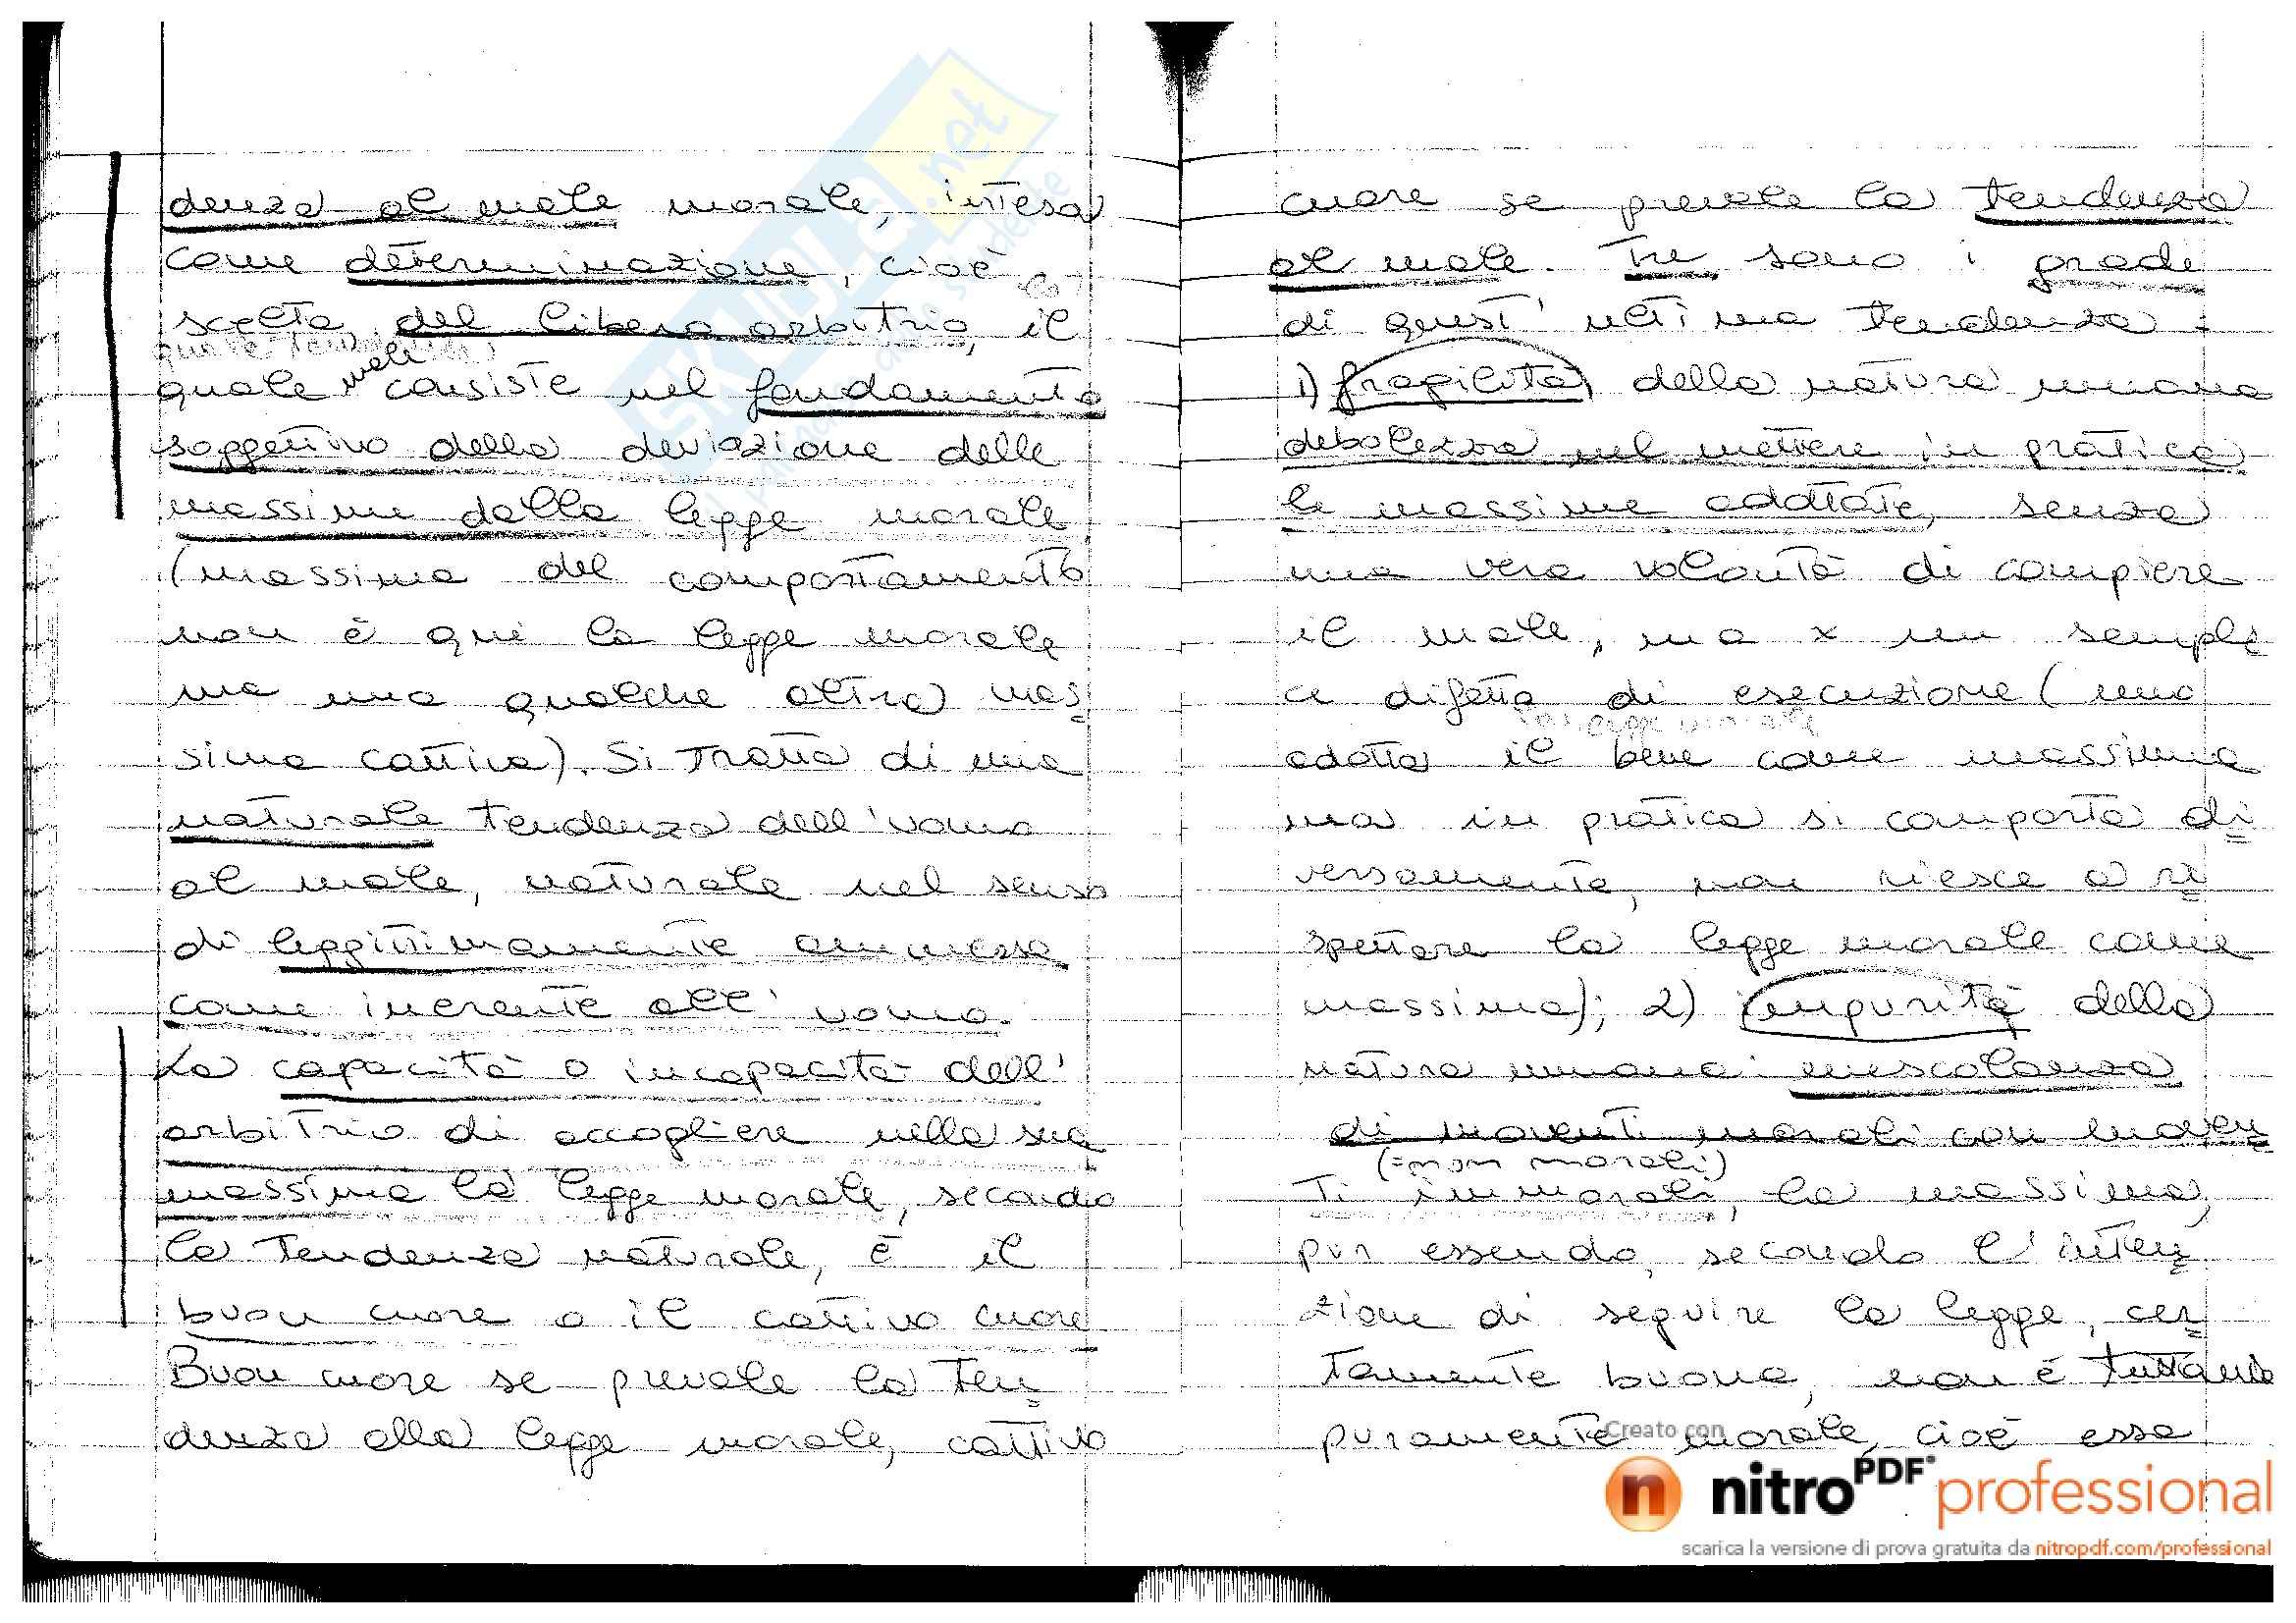 denza al male morale, intesa
come determinazione, cioè
la
scelta, del libero arbitrio, il
quale
male
quale consiste nel fondamento
soggettivo della deviazione delle
massime dalla legge morale
(massima del comportamento
non è qui la legge morale
ma una qualche altra mas
sima cattiva). Si tratta di una
naturale tendenza dell'uomo
al male, naturale nel senso
di leggittimamente ammessa
come inerente all'uomo.
La capacità o incapacità dell'
arbitrio di accogliere nella sua
massima la legge morale, secondo
la tendenza naturale, è il
buon cuore o il cattivo cuore
Buon cuore se prevale la ten
denza alla legge morale, cattivo
cuore se prevale la tendenza
al male. Tre sono i gradi
di quest'ultima tendenza:
1) fragilità della natura umana
debolezza nel mettere in pratica
le massime addotate, senza
una vera volontà di compiere
il male, ma x un sempli
ce difetto di esecuzione (uno
legge morale
adotta il bene come massima
ma in pratica si comporta di
versamente, non riesce a ri
spettare la legge morale come
massima); 2) impurità della
natura umana: mescolanza
di moventi morali con moven
(=non morali)
ti immorali, la massima,
pur essendo, secondo l'inten
zione di seguire la legge, cer
tamente buona, non è tuttavia
puramente morale, cioè essa
SKUOLA.net
Creato con
nitro PDF professional
scarica la versione di prova gratuita da nitropdf.com/professional